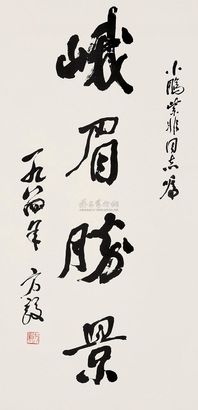 小鹏紫非同志嘱
峨眉勝景
一九八四年 方毅